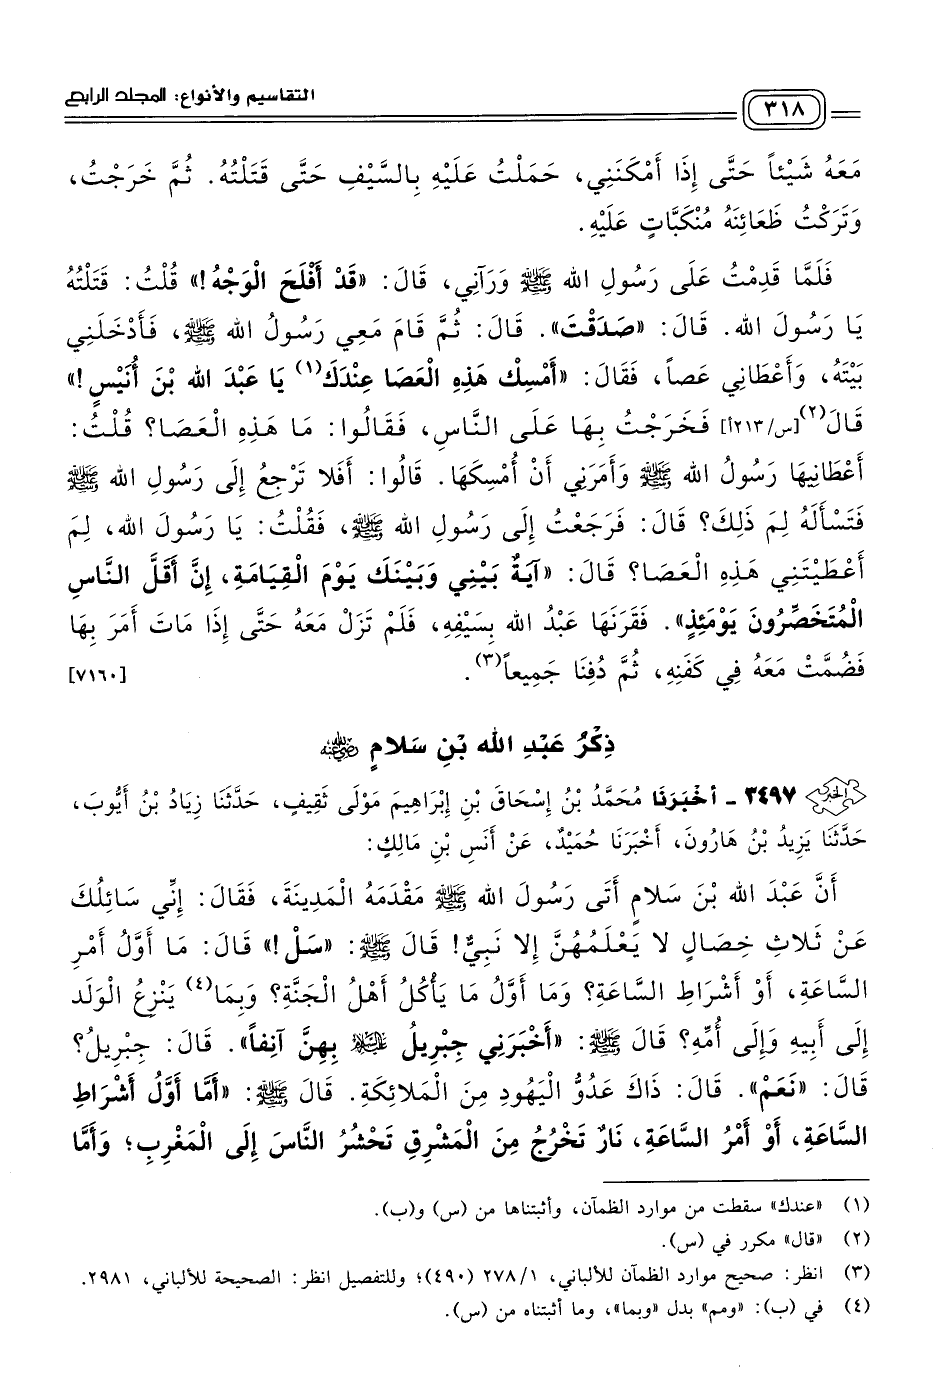 ٣١٨
التقاسيم والأنواع: المجلد الرابع
مَعَهُ شَيْئاً حَتَّى إِذَا أَمْكَنَنِي، حَمَلْتُ عَلَيْهِ بِالسَّيْفِ حَتَّى قَتَلْتُهُ. ثُمَّ خَرَجْتُ،
وَتَرَكْتُ ظَعَائِنَهُ مُنْكَبَّاتٍ عَلَيْهِ.
فَلَمَّا قَدِمْتُ عَلَى رَسُولِ الله ﷺ وَرَآنِي، قَالَ: «قَدْ أَفْلَحَ الْوَجْهُ!» قُلْتُ: قَتَلْتُهُ
يَا رَسُولَ الله. قَالَ: «صَدَقْتَ». قَالَ: ثُمَّ قَامَ مَعِي رَسُولُ الله ﷺ، فَأَدْخَلَنِي
بَيْتَهُ، وَأَعْطَانِي عَصاً، فَقَالَ: «أَمْسِكْ هَذِهِ الْعَصَا عِنْدَكَ(١) يَا عَبْدَ الله بْنَ أُنَيْسٍ!»
قَالَ(٢)[س/٢١٣أ] فَخَرَجْتُ بِهَا عَلَى النَّاسِ، فَقَالُوا: مَا هَذِهِ الْعَصَا؟ قُلْتُ:
أَعْطَانِيهَا رَسُولُ الله ﷺ وَأَمَرَنِي أَنْ أُمْسِكَهَا. قَالُوا: أَفَلا تَرْجِعُ إِلَى رَسُولِ الله ﷺ
فَتَسْأَلَهُ لِمَ ذَلِكَ؟ قَالَ: فَرَجَعْتُ إِلَى رَسُولِ الله ﷺ، فَقُلْتُ: يَا رَسُولَ الله، لِمَ
أَعْطَيْتَنِي هَذِهِ الْعَصَا؟ قَالَ: «آيَةٌ بَيْنِي وَبَيْنَكَ يَوْمَ الْقِيَامَةِ، إِنَّ أَقَلَّ النَّاسِ
الْمُتَخَصِّرُونَ يَوْمَئِذٍ». فَقَرَنَهَا عَبْدُ الله بِسَيْفِهِ، فَلَمْ تَزَلْ مَعَهُ حَتَّى إِذَا مَاتَ أَمَرَ بِهَا
فَضُمَّتْ مَعَهُ فِي كَفَنِهِ، ثُمَّ دُفِنَا جَمِيعاً(٣). [٧١٦٠]
ذِكْرُ عَبْدِ الله بْنِ سَلامٍ رضي الله عنه
الخبر ٣٤٩٧ - أَخْبَرَنَا مُحَمَّدُ بْنُ إِسْحَاقَ بْنِ إِبْرَاهِيمَ مَوْلَى ثَقِيفٍ، حَدَّثَنَا زِيَادُ بْنُ أَيُّوبَ،
حَدَّثَنَا يَزِيدُ بْنُ هَارُونَ، أَخْبَرَنَا حُمَيْدٌ، عَنْ أَنَسِ بْنِ مَالِكٍ:
أَنَّ عَبْدَ الله بْنَ سَلامٍ أَتَى رَسُولَ الله ﷺ مَقْدَمَهُ الْمَدِينَةَ، فَقَالَ: إِنِّي سَائِلُكَ
عَنْ ثَلاثِ خِصَالٍ لا يَعْلَمُهُنَّ إِلا نَبِيٌّ! قَالَ ﷺ: «سَلْ!» قَالَ: مَا أَوَّلُ أَمْرِ
السَّاعَةِ، أَوْ أَشْرَاطِ السَّاعَةِ؟ وَمَا أَوَّلُ مَا يَأْكُلُ أَهْلُ الْجَنَّةِ؟ وَبِمَا(٤) يَنْزِعُ الْوَلَد
إِلَى أَبِيهِ وَإِلَى أُمِّهِ؟ قَالَ ﷺ: «أَخْبَرَنِي جِبْرِيلُ عليه السلام بِهِنَّ آنِفاً». قَالَ: جِبْرِيلُ؟
قَالَ: «نَعَمْ». قَالَ: ذَاكَ عَدُوُّ الْيَهُودِ مِنَ الْمَلائِكَةِ. قَالَ ﷺ: «أَمَّا أَوَّلُ أَشْرَاطِ
السَّاعَةِ، أَوْ أَمْرُ السَّاعَةِ، نَارٌ تَخْرُجُ مِنَ الْمَشْرِقِ تَحْشُرُ النَّاسَ إِلَى الْمَغْرِبِ؛ وَأَمَّا
(١) «عندك» سقطت من موارد الظمآن، وأثبتناها من (س) و(ب).
(٢) «قال» مكرر في (س).
(٣) انظر: صحيح موارد الظمآن للألباني، ٢٧٨/١ (٤٩٠)؛ وللتفصيل انظر: الصحيحة للألباني، ٢٩٨١.
(٤) في (ب): «ومم» بدل «وبما»، وما أثبتناه من (س).